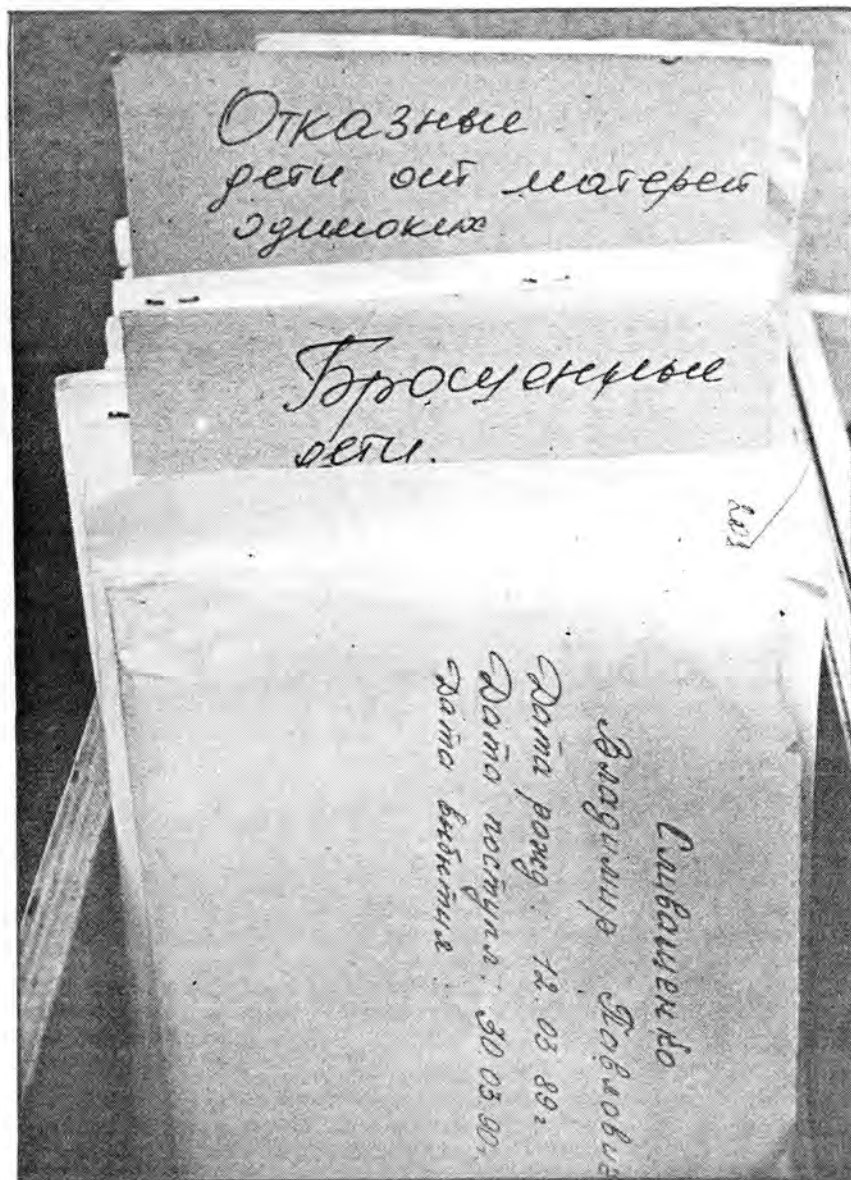 Отказные
дети от матерей
одиноких
Брошенные
дети.
Сливащенко
Владимир Павлович
Дата рожд. 12.03 89г.
Дата поступл. 30.03.90г.
Дата выбытия